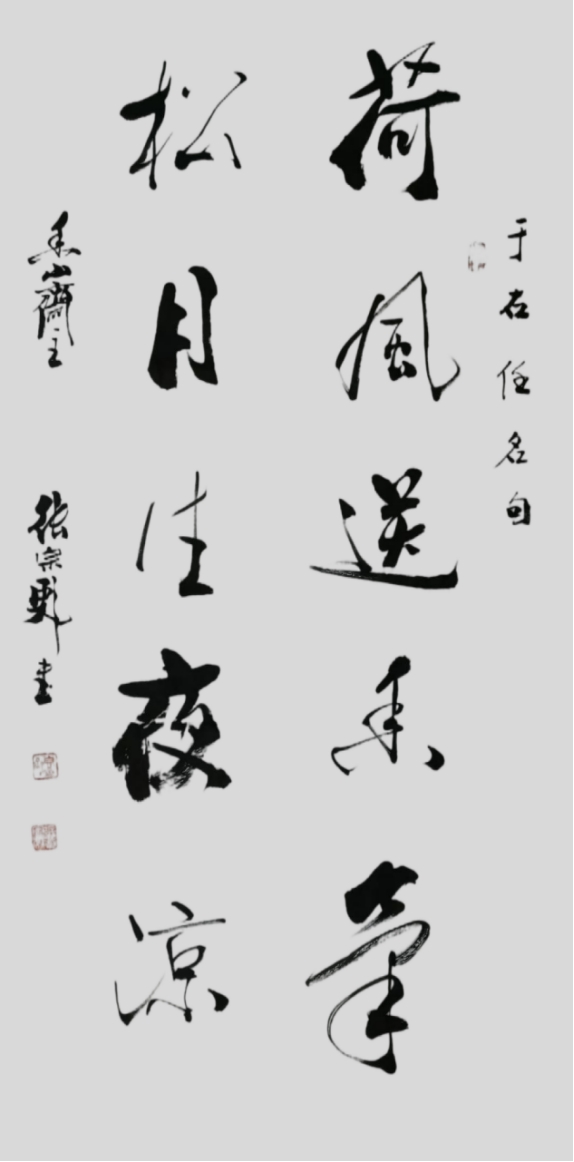 于右任名句
荷風送香氣
松月生夜凉
香山齋主
張宗彪書